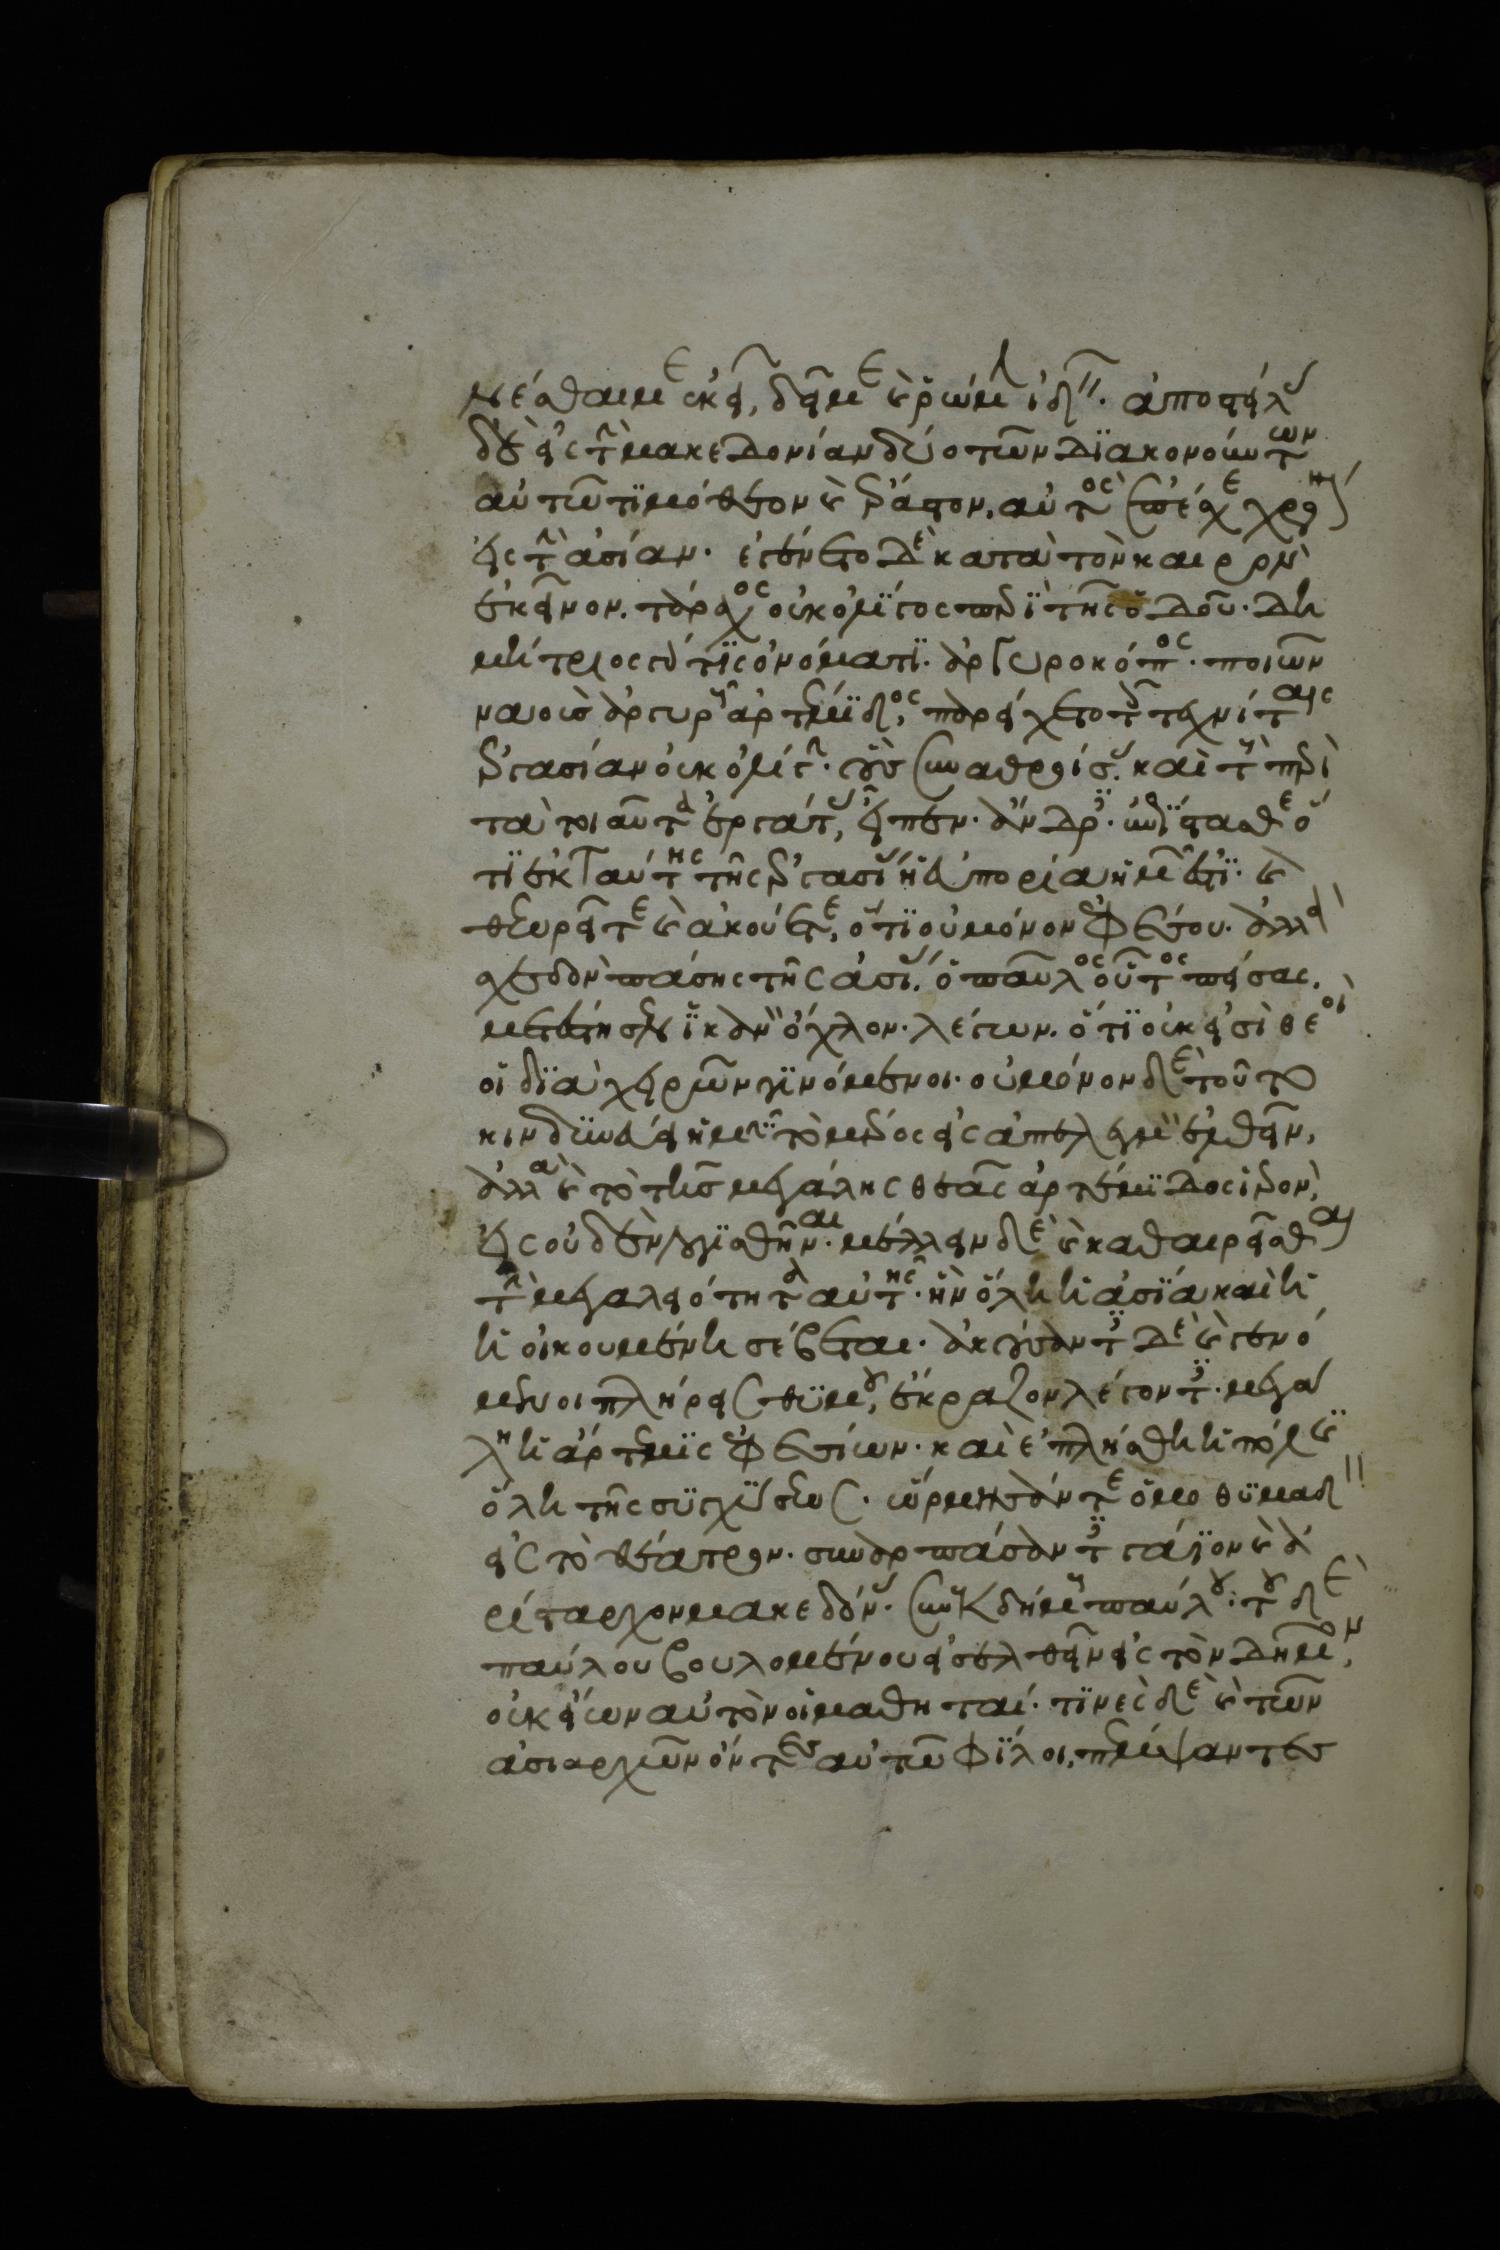 νέσθαι με ἐκεῖ, δεῖ με καὶ ῥώμην ἰδεῖν. ἀποστείλας
δὲ εἰς τὴν μακεδονίαν δύο τῶν διακονούντων
αὐτῶ τιμόθεον καὶ ἔραστον, αὐτὸς ἐπέσχε χρόνον
εἰς τὴν ἀσίαν. ἐγένετο δὲ κατὰ τὸν καιρὸν
ἐκεῖνον. τάραχος οὐκ ὀλίγος περὶ τῆς ὁδοῦ. δη
μήτριος γάρ τις ὀνόματι. ἀργυροκόπος. ποιῶν
ναοὺς ἀργυροῦς ἀρτέμιδος, παρείχετο τοῖς τεχνίταις
ἐργασίαν οὐκ ὀλίγην. οὓς συναθροίσας. καὶ τοὺς περὶ
τὰ τοιαῦτα ἐργάτας, εἶπεν. ἄνδρες. ἐπίστασθε ὅ
τι ἐκ ταύτης τῆς ἐργασίας ἡ εὐπορία ἡμῶν ἐστι. καὶ
θεωρεῖτε καὶ ἀκούετε, ὅτι οὐ μόνον ἐφέσου. ἀλλὰ
σχεδὸν πάσης τῆς ἀσίας. ὁ παῦλος οὗτος πείσας.
μετέστησεν ἱκανὸν ὄχλον. λέγων. ὅτι οὐκ εἰσὶ θεοὶ
οἱ διὰ χειρῶν γινόμενοι. οὐ μόνον δὲ τοῦτο
κινδυνεύει ἡμῖν τὸ μέρος εἰς ἀπελεγμὸν ἐλθεῖν,
ἀλλὰ καὶ τὸ τῆς μεγάλης θεᾶς ἀρτέμιδος ἱερὸν,
εἰς οὐδὲν λογισθῆναι. μέλλειν δὲ καὶ καθαιρεῖσθαι
τὴν μεγαλειότητα αὐτῆς. ἣν ὅλη ἡ ἀσία καὶ ἡ
ἡ οἰκουμένη σέβεται. ἀκούσαντες δὲ καὶ γενό
μενοι πλήρεις θυμοῦ, ἔκραζον λέγοντες. μεγά
λη ἡ ἄρτεμις ἐφεσίων. καὶ ἐπλήσθη ἡ πόλις
ὅλη τῆς συγχύσεως. ὥρμησάν τε ὁμοθυμαδὸν
εἰς τὸ θέατρον. συναρπάσαντες γάϊον καὶ ἀ
ρίσταρχον μακεδόνας. συνεκδήμους παύλου. τοῦ δὲ
παύλου βουλομένου εἰσελθεῖν εἰς τὸν δῆμον,
οὐκ εἴων αὐτὸν οἱ μαθηταί. τινὲς δὲ καὶ τῶν
ἀσιαρχῶν ὄντες αὐτῶ φίλοι, πέμψαντες